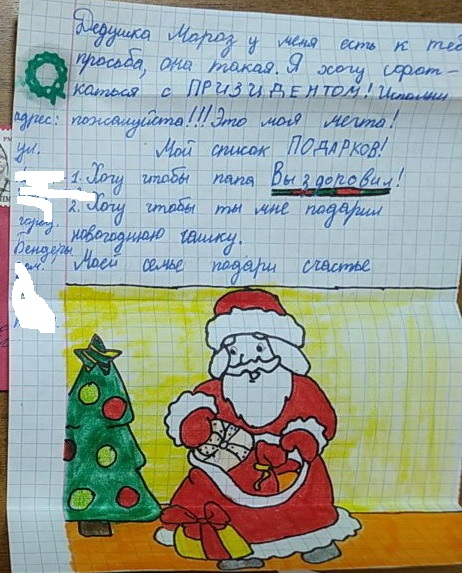 Дедушка Мороз у меня есть к теб
просьба, она такая. Я хочу
каться с ПРИЗИДЕНТОМ! Исполни
адрес: пожалуйста!!! Это моя мечта!
ул. Мой список ПОДАРКОВ!
1. Хочу чтобы папа Выздоровил!
2. Хочу чтобы ты мне подарил
город. новогоднюю чашку.
Бендеры
Моей семье подари счастье